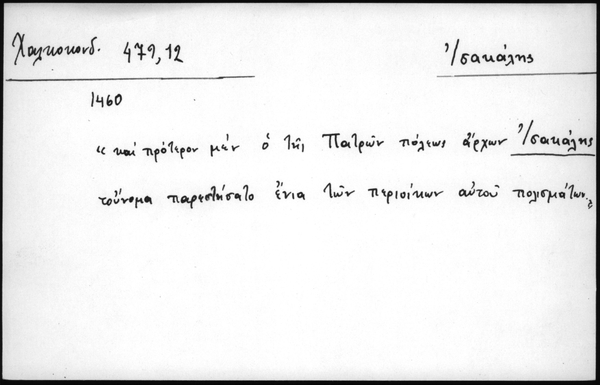 Χαλκοκονδ. 479,12
Ἰσακάλης
1460
"καὶ πρότερον μὲν ὁ τῆς Πατρῶν πόλεως ἄρχων Ἰσακάλης
τοὔνομα παρεστήσατο ἔνια τῶν περιοίκων αὐτοῦ πολισμάτων."